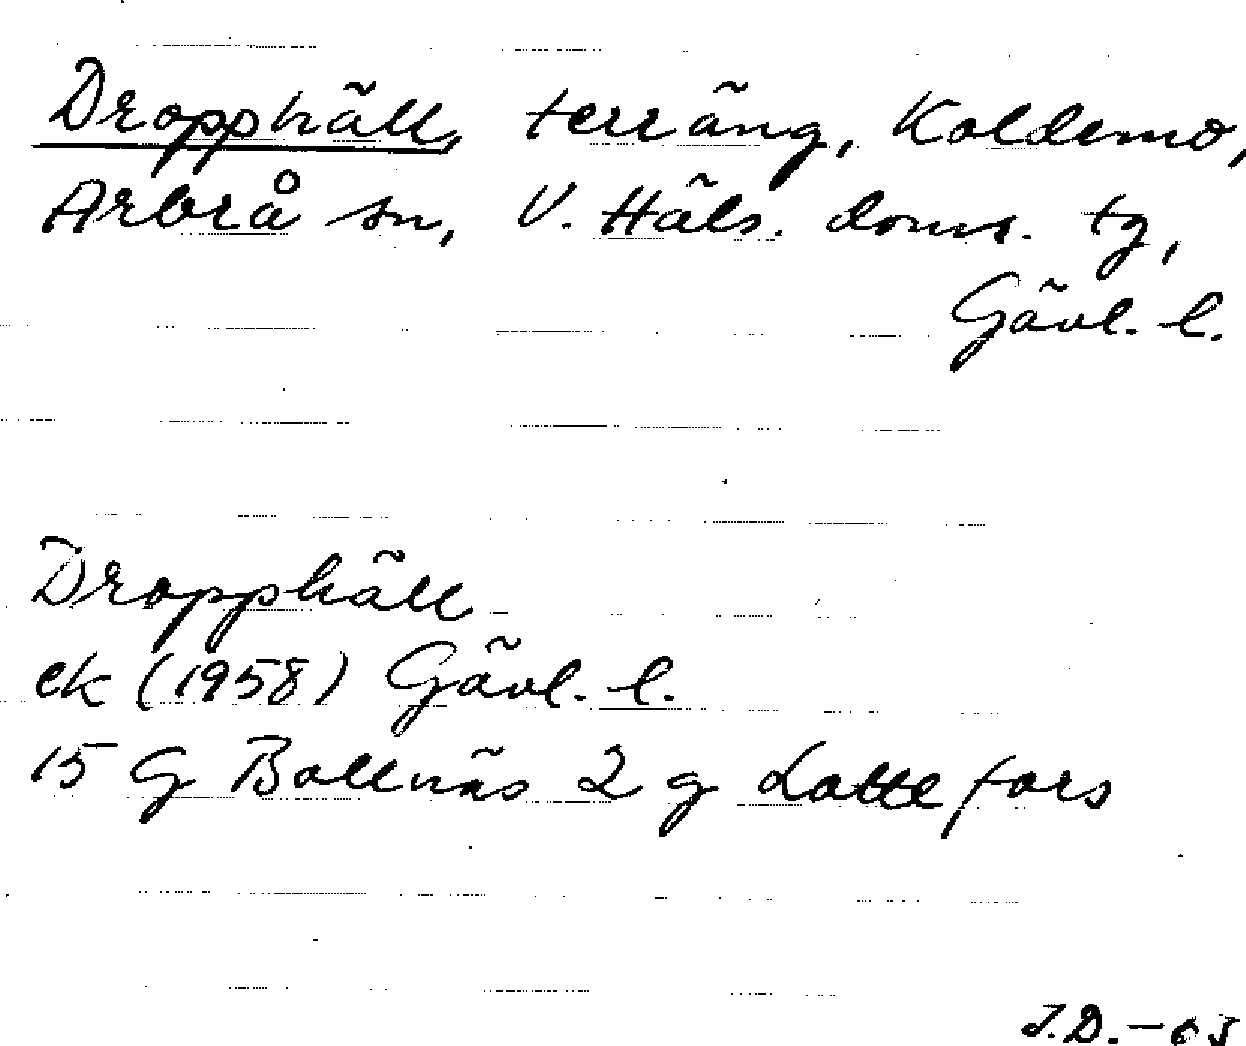 Dropphäll, terräng, Koldemo,
Arbrå sn, V. Häls. doms. tg,
Gävl. l.
Dropphäll
ek (1958) Gävl. l.
15 G Bollnäs 2 g Lottefors
J.D. -63